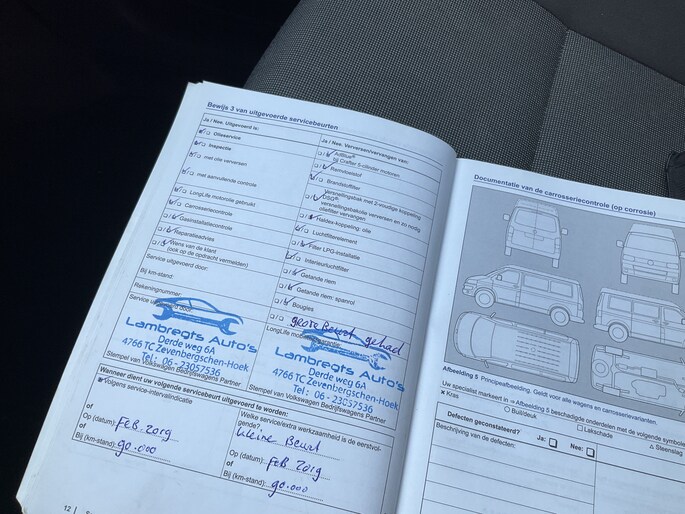 Bewijs 3 van uitgevoerde servicebeurten
Ja / Nee. Uitgevoerd is:
Olieservice
Inspectie
met olie verversen
met aanvullende controle
LongLife motorolie gebruikt
Carrosseriecontrole
Gasinstallatiecontrole
Reparatieadvies
Wens van de klant
(ook op de opdracht vermelden)
Service uitgevoerd door:
Bij km-stand:
Rekeningnummer:
Service uitgevoerd door:
Lambregts Auto's
Derde weg 6A
4766 TC Zevenbergschen-Hoek
Tel: 06 - 23057536
Stempel van Volkswagen Bedrijfswagens Partner
Ja / Nee. Verversen/vervangen van:
AdBlue®
bij Crafter 4-cilinder motoren
Remvloeistof
Brandstoffilter
Versnellingsbak met 2-voudige koppeling
DSG®
versnellingsbakolie verversen en zo nodig
oliefilter vervangen
Haldex-koppeling: olie
Luchtfilterelement
Filter LPG-installatie
Interieurluchtfilter
Getande riem
Getande riem: spanrol
Bougies
grote Beurt gehad
LongLife
Lambregts Auto's
Derde weg 6A
4766 TC Zevenbergschen-Hoek
Tel : 06 - 23057536
Stempel van Volkswagen Bedrijfswagens Partner
Wanneer dient uw volgende servicebeurt uitgevoerd te worden:
Volgens service-intervalindicatie
of
Op (datum): FEB 2019
of
Bij (km-stand): 90.000
Welke service/extra werkzaamheid is de eerstvol-
gende?
kleine Beurt
Op (datum): FEB 2019
of
Bij (km-stand): 90.000
12
Documentatie van de carrosseriecontrole (op corrosie)
Afbeelding 5 Principeafbeelding. Geldt voor alle wagens en carrosserievarianten.
Uw specialist markeert in ⇒ Afbeelding 5 beschadigde onderdelen met de volgende symbolen
× Kras
○ Buil/deuk
□ Lakschade
△ Steenslag
Defecten geconstateerd?
Ja:
Nee:
Beschrijving van de defecten: